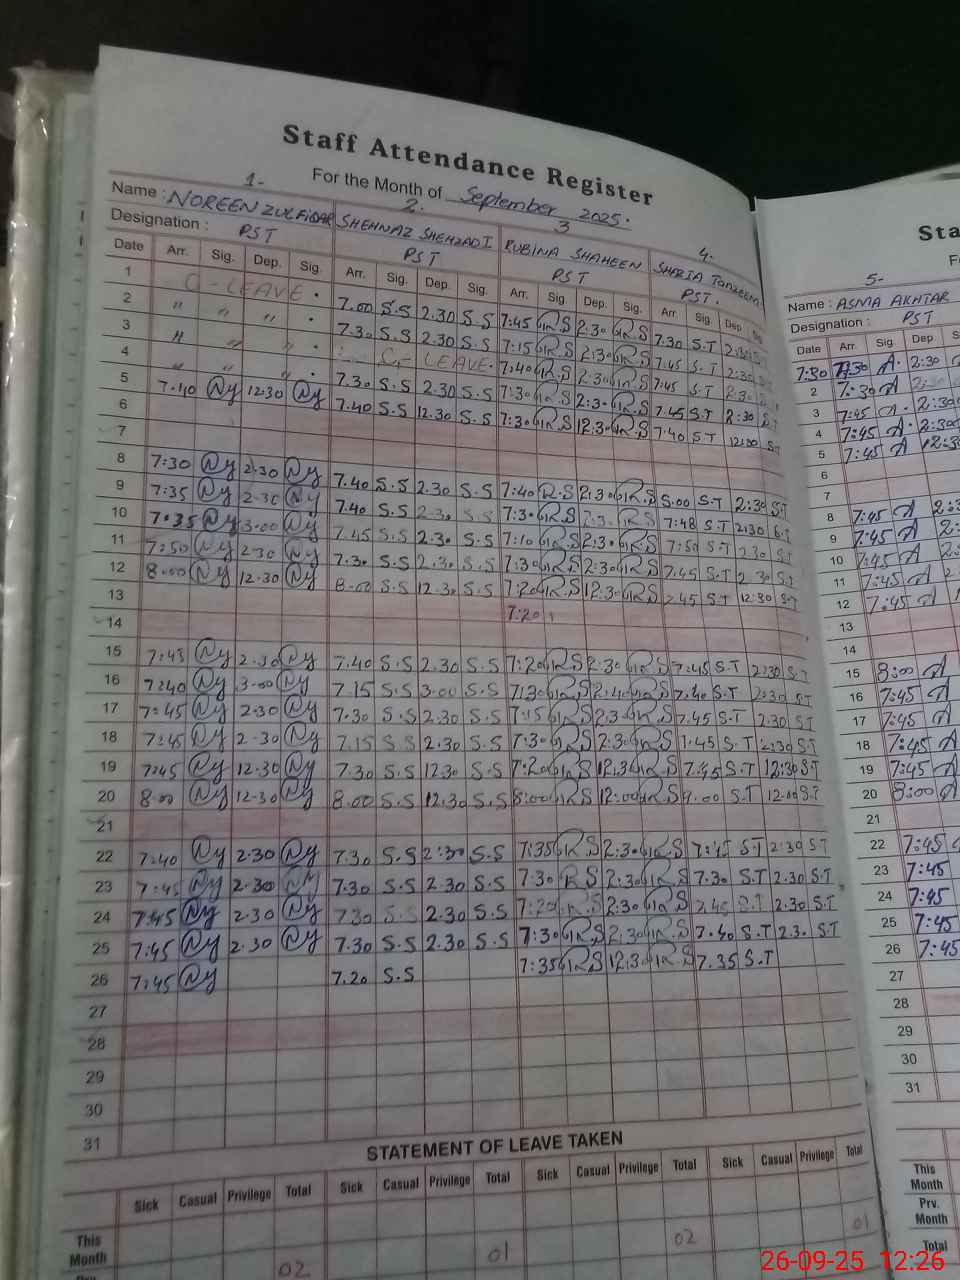 Staff Attendance Register
For the Month of September 2025.
1- 2. 3 4.
Name : NOREEN ZULFIQAR SHEHNAZ SHEHZADI RUBINA SHAHEEN SHAZIA
Designation : PST PST PST PST.
Date Arr. Sig. Dep. Sig. Arr. Sig. Dep. Sig. Arr. Sig. Dep. Sig. Arr. Sig. Dep
1 C-LEAVE. 7.00 S.S 2.30 S.S 7:45 R.S 2:30 R.S 7.30 S.T 2:30
2 " " " . 7.30 S.S 2.30 S.S 7:15 R.S 2:30 R.S 7.45 S.T 2:30
3 " " " . C- LEAVE. 7:40 R.S 2:30 R.S 7:45 S.T 2:30
4 " " " . 7.30 S.S 2.30 S.S 7:30 R.S 2:30 R.S 7.45 S.T 2:30
5 7.40 Ny 12.30 Ny 7.40 S.S 12.30 S.S 7:30 R.S 12.30 R.S 7.40 S.T 12:30 S.T
6
7
8 7:30 Ny 2.30 Ny 7.40 S.S 2.30 S.S 7:40 R.S 2:30 R.S 8.00 S.T 2:30 S.T
9 7:35 Ny 2.30 Ny 7.40 S.S 2.30 S.S 7:30 R.S 2:30 R.S 7:48 S.T 2:30 S.T
10 7.35 Ny 3.00 Ny 7.45 S.S 2.30 S.S 7:10 R.S 2:30 R.S 7:50 S.T 2.30 S.T
11 7:50 Ny 2.30 Ny 7.30 S.S 2.30 S.S 7:30 R.S 2:30 R.S 7.45 S.T 2.30 S.T
12 8.00 Ny 12.30 Ny 8.00 S.S 12.30 S.S 7:20 R.S 12:30 R.S 7.45 S.T 12:30 S.T
13 7:20
14
15 7:45 Ny 2.30 Ny 7.40 S.S 2.30 S.S 7:20 R.S 2:30 R.S 7:45 S.T 2:30 S.T
16 7:40 Ny 3.00 Ny 7.15 S.S 3.00 S.S 7:30 R.S 2:40 R.S 7.40 S.T 2:30 S.T
17 7:45 Ny 2.30 Ny 7.30 S.S 2.30 S.S 7:15 R.S 2:30 R.S 7.45 S.T 2.30 S.T
18 7:45 Ny 2.30 Ny 7.15 S.S 2.30 S.S 7:30 R.S 2:30 R.S 7.45 S.T 2:30 S.T
19 7:45 Ny 12.30 Ny 7.30 S.S 12.30 S.S 7:20 R.S 12.30 R.S 7.45 S.T 12:30 S.T
20 8.00 Ny 12.30 Ny 8.00 S.S 12.30 S.S 8:00 R.S 12:00 R.S 9.00 S.T 12.00 S.T
21
22 7:40 Ny 2.30 Ny 7.30 S.S 2:30 S.S 7:35 R.S 2:30 R.S 7:45 S.T 2:30 S.T
23 7:45 Ny 2.30 Ny 7.30 S.S 2.30 S.S 7:30 R.S 2:30 R.S 7.30 S.T 2.30 S.T
24 7:45 Ny 2.30 Ny 7.30 S.S 2.30 S.S 7:20 R.S 2:30 R.S 7.45 S.T 2.30 S.T
25 7:45 Ny 2.30 Ny 7.30 S.S 2.30 S.S 7:30 R.S 2:30 R.S 7.40 S.T 2.30 S.T
26 7:45 Ny 7.20 S.S 7:35 R.S 12.30 R.S 7.35 S.T
27
28
29
30
31
STATEMENT OF LEAVE TAKEN
Sick Casual Privilege Total Sick Casual Privilege Total Sick Casual Privilege Total Sick Casual Privilege Total
This Month 02 01 02 01
Sta
5-
Name : ASMA AKHTAR
Designation : PST
Date Arr. Sig. Dep
7:30 7:30 A. 2:30
2 7:30 A 2:30
3 7:45 A. 2:30
4 7:45 A. 2:30
5 7:45 A 12:30
6
7
8 7:45 A
9 7:45 A
10 7:45 A
11 7:45 A
12 7:45 A
13
14
15 8:00 A
16 7:45 A
17 7:45 A
18 7:45 A
19 7:45 A
20 8:00 A
21
22 7:45 A
23 7:45
24 7:45
25 7:45
26 7:45
27
28
29
30
31
This Month
Prv. Month
Total
26-09-25 12:26